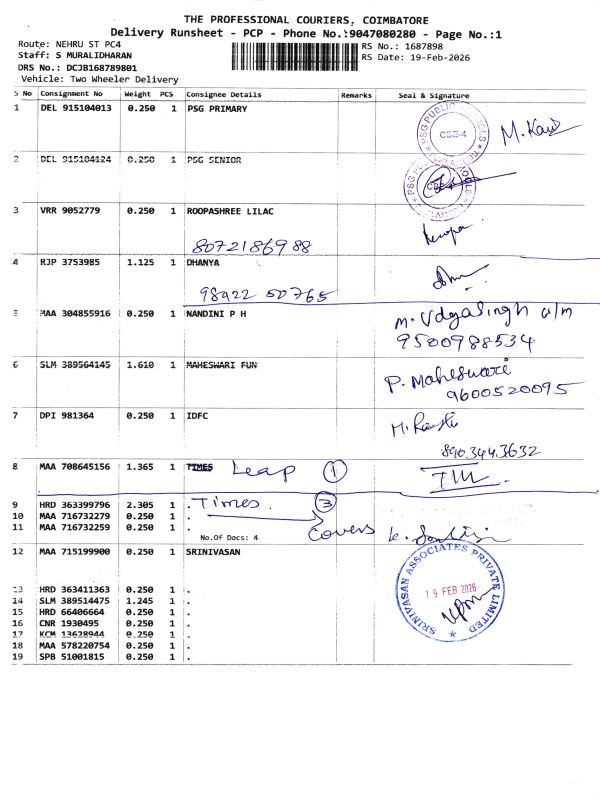 THE PROFESSIONAL COURIERS, COIMBATORE
Delivery Runsheet - PCP - Phone No.:9047080280 - Page No.:1
Route: NEHRU ST PC4
RS No.: 1687898
Staff: S MURALIDHARAN
RS Date: 19-Feb-2026
DRS No.: DCJB168789801
Vehicle: Two Wheeler Delivery
S No Consignment No Weight PCS Consignee Details Remarks Seal & Signature
1 DEL 915104013 0.250 1 PSG PRIMARY
CBE-4
M. Kavi
2 DEL 915104124 0.250 1 PSG SENIOR
3 VRR 9052779 0.250 1 ROOPASHREE LILAC
8072186988
4 RJP 3753985 1.125 1 DHANYA
98422 50765
5 MAA 304855916 0.250 1 NANDINI P H
M. Udyasingh
9500988534
6 SLM 389564145 1.610 1 MAHESWARI FUN
P. Maheswari
9600520095
7 DPI 981364 0.250 1 IDFC
890.344.3632
8 MAA 708645156 1.365 1 TIMES Leap 1
9 HRD 363399796 2.305 1 . Times. 3
10 MAA 716732279 0.250 1 .
11 MAA 716732259 0.250 1 . Covers
No.Of Docs: 4
12 MAA 715199900 0.250 1 SRINIVASAN
SRINIVASAN ASSOCIATES PRIVATE LIMITED
19 FEB 2026
13 HRD 363411363 0.250 1 .
14 SLM 389514475 1.245 1 .
15 HRD 66406664 0.250 1 .
16 CNR 1930495 0.250 1 .
17 KCM 13628944 0.250 1 .
18 MAA 578220754 0.250 1 .
19 SPB 51001815 0.250 1 .